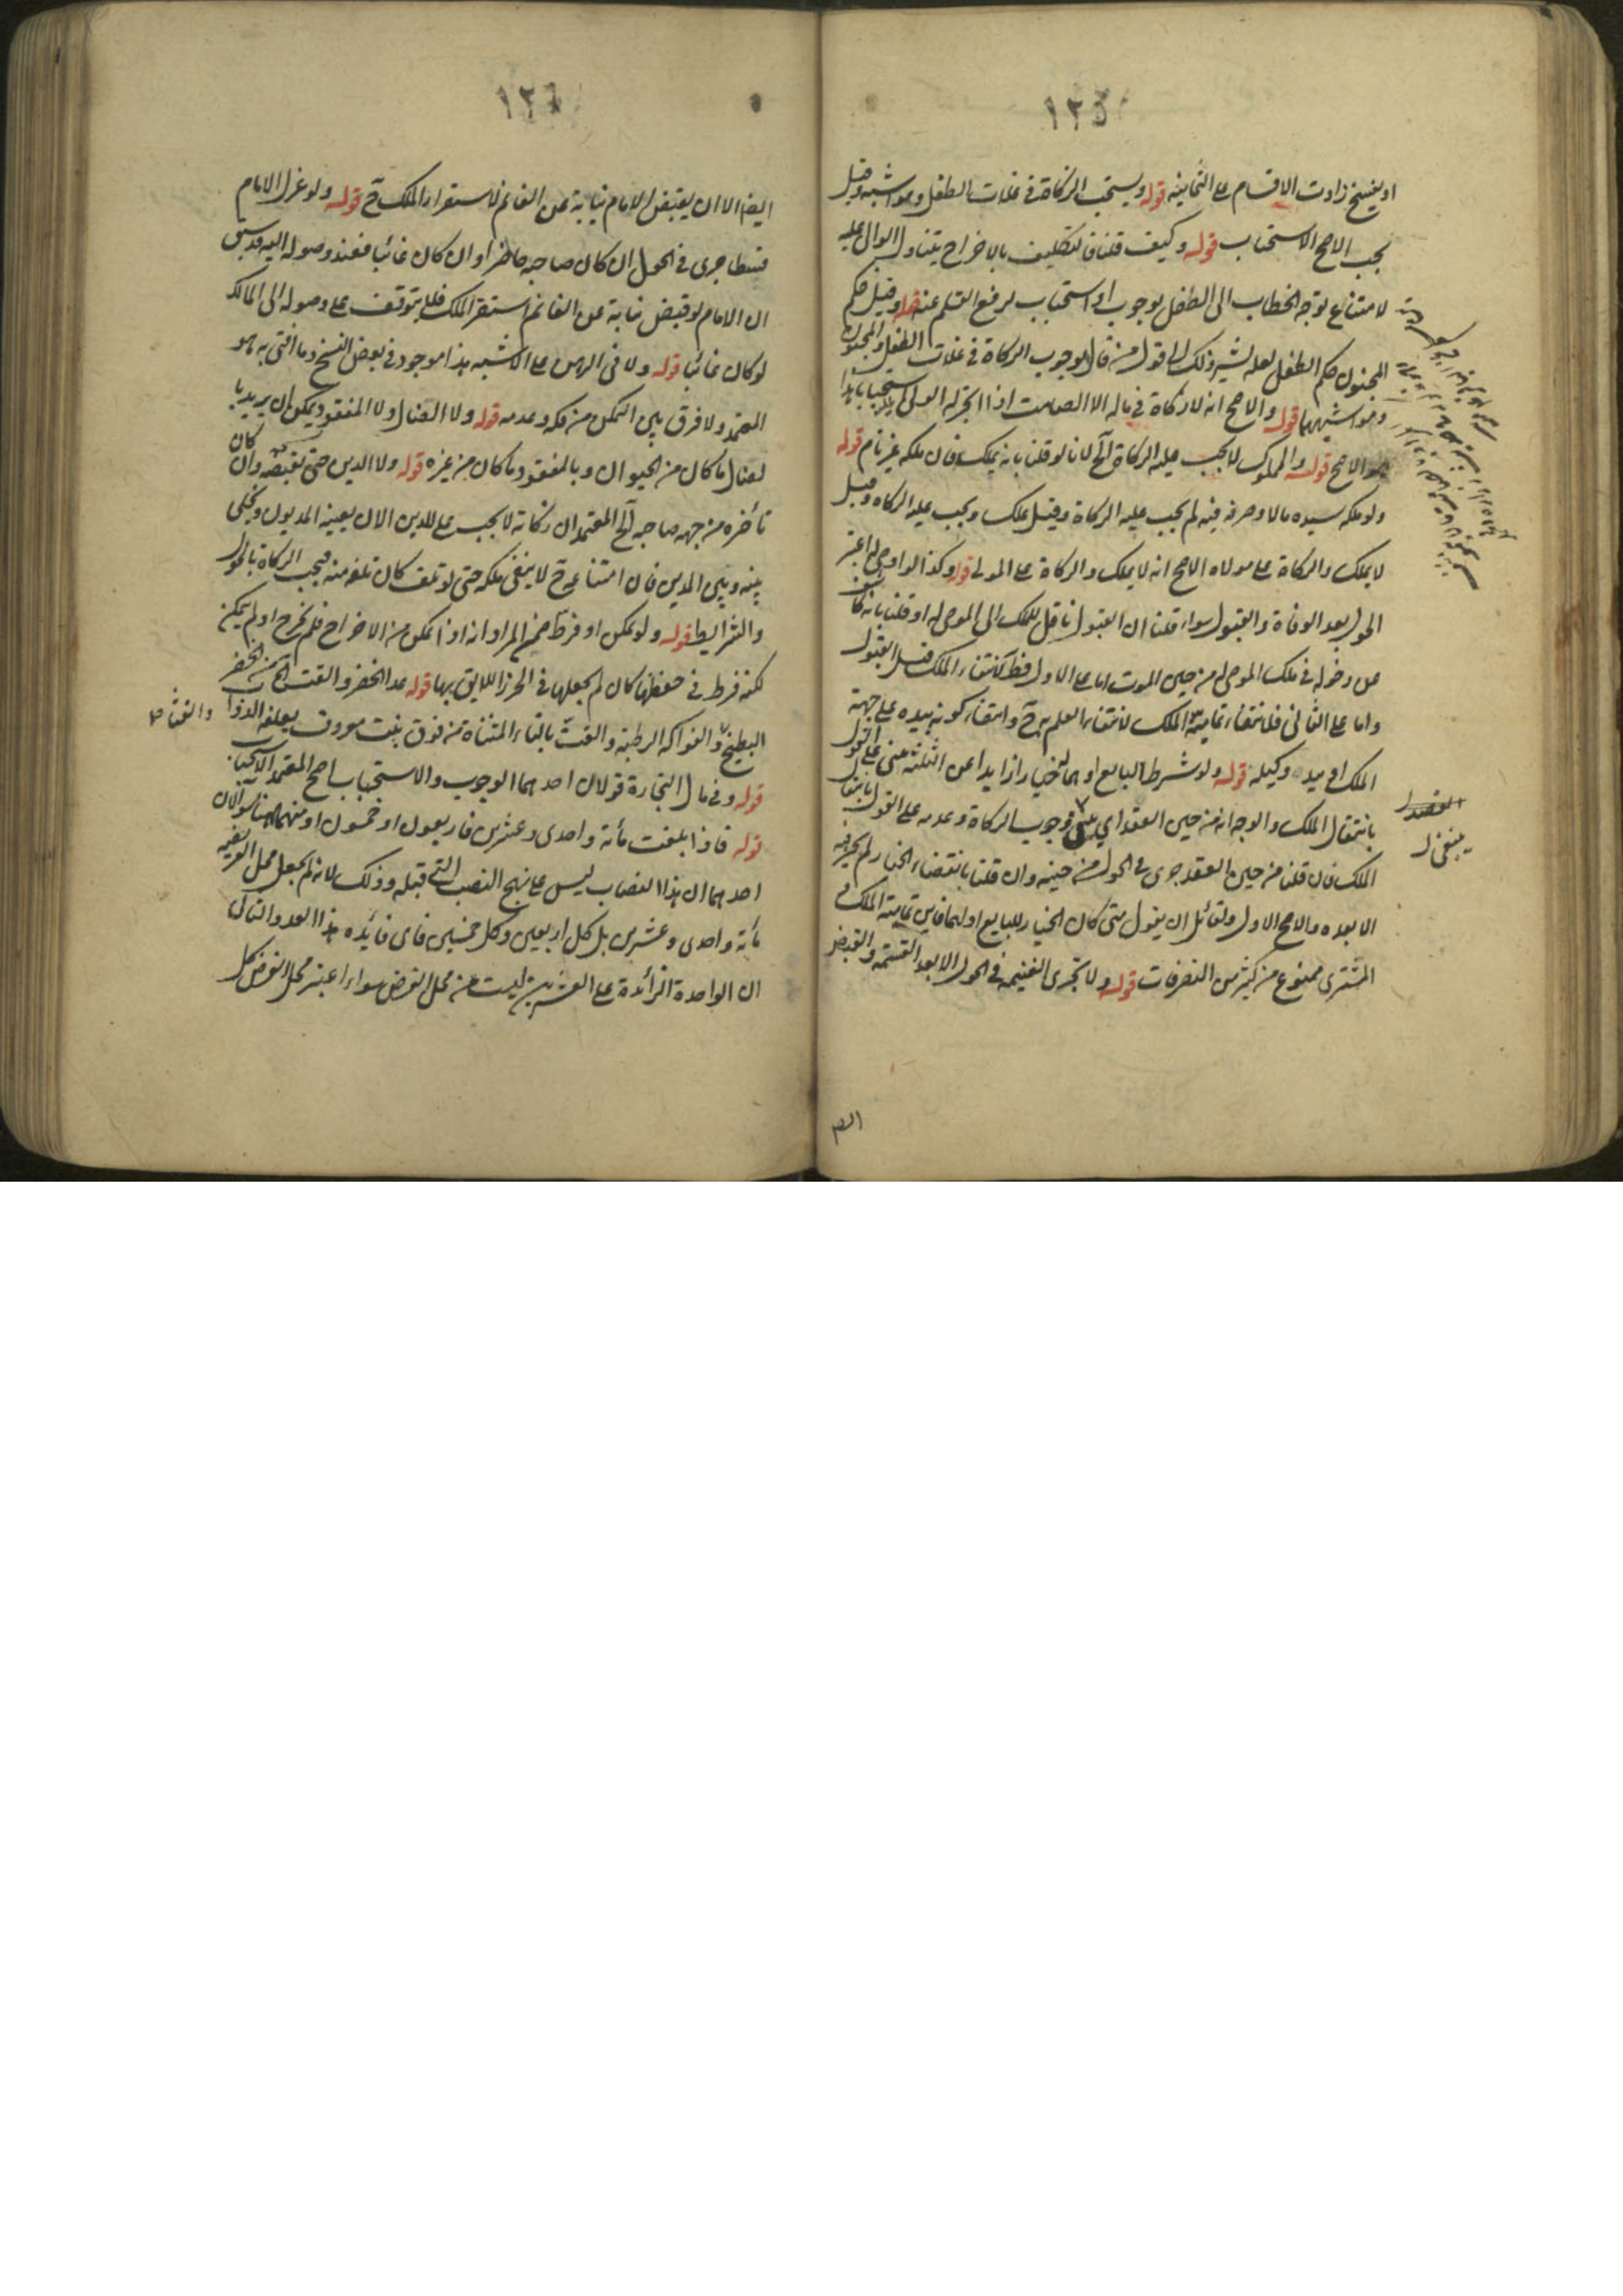 ١٢٥
او يفسخ زادت الاقسام على الثمانية قوله ويستحب الزكاة في غلات الطفل ومواشيه وقيل
يجب الاصح الاستحباب قوله وكيف قلنا فالتكليف بالاخراج يتناول الوالى عليه
لامتناع توجه الخطاب الى الطفل بوجوب او استحباب لرفع القلم عنه قوله وقيل حكم
المجنون حكم الطفل لعله يشير بذلك الى قول من قال بوجوب الزكاة في غلات الطفل والمجنون
ومواشيهما قوله والاصح انه لا زكاة في ماله الا الصامت اذا اتجر له الولى استحبابا هذا
هو الاصح قوله والمملوك لا يجب عليه الزكاة الخ لانا لو قلنا بانه يملك فان ملكه غير تام قوله
ولو ملكه سيده مالا وصرفه فيه لم يجب عليه الزكاة وقيل يملك ويجب عليه الزكاة وقيل
لا يملك والزكاة على مولاه الاصح انه لا يملك والزكاة على المولى قوله وكذا لو اوصى له اعتبر
الحول بعد الوفاة والقبول سواء قلنا ان القبول ناقل للملك الى الموصى له او قلنا بانه كاشف
عن دخوله في ملك الموصى له من حين الموت اما على الاول فظ لانتفاء الملك قبل القبول
واما على الثانى فلانتفاء تمامية الملك لانتفاء العلم به ح وانتفاء كونه بيده على جهة
الملك او بيد وكيله قوله ولو شرط البايع او هما خيارا زايدا عن الثلثة بنى على القول
بانتقال الملك والوجه انه من حين العقد اي بنى وجوب الزكاة وعدمه على القول بانتقال
الملك فان قلنا من حين العقد جرى في الحول من حينه وان قلنا بانقضاء الخيار لم يجر فيه
الا بعده والاصح الاول ولقائل ان يقول متى كان الخيار للبايع او لهما فاين تمامية الملك و
المشترى ممنوع من كثير من التصرفات قوله ولا تجرى الغنيمة في الحول الا بعد القسمة والقبض
١٢٦
ايضا الا ان يقبض الامام نيابة عن الغانم لاستقرار الملك ح قوله ولو عزل الامام
قسطا جرى في الحول ان كان صاحبه حاضرا وان كان غائبا فعند وصوله اليه قد سبق
ان الامام لو قبض نيابة عن الغانم استقر الملك فلا يتوقف على وصوله الى المالك
لو كان غائبا قوله ولا في الرهن على الاشبه هذا موجود في بعض النسخ وما افتى به هو
المعتمد ولا فرق بين التمكن من فكه وعدمه قوله ولا الضال ولا المفقود يمكن ان يريد با
لضال ما كان من الحيوان وبالمفقود ما كان من غيره قوله ولا الدين حتى يقبضه وان كان
تأخره من جهة صاحبه الخ المعتمد ان زكاته لا يجب على المدين الا ان يعينه المديون ويخلى
بينه وبين الدين فان امتناعه ح لا ينفى ملكه حتى لو تلف كان تلفه منه فيجب الزكاة بالحول
والشرايط قوله ولو تمكن او فرط ضمن المراد انه اذا تمكن من الاخراج فلم يخرج او لم يتمكن
لكنه فرط في حفظها كان لم يجعلها في الحرز اللايق بها قوله عدا الخضر والقت الخ من الخضر
البطيخ والفواكه الرطبة والقت بالتاء المثناة من فوق نبت معروف يعلفه الدواب
والقثاء صح
قوله وفي مال التجارة قولان احدهما الوجوب والاستحباب اصح المعتمد الاستحباب
قوله فاذا بلغت مأة واحدى وعشرين فاربعون او خمسون او منهما هنا سؤالان
احدهما ان هذا النصاب ليس على نهج النصب التى قبله وذلك لانه لم يجعل محل الفريضة
مأة واحدى وعشرين بل كل اربعين وكل خمسين فاى فائده هذا العدد والثانى
ان الواحدة الزائدة على العشرين ليست من محل الفرض سواء اعتبر محل الفرض كل